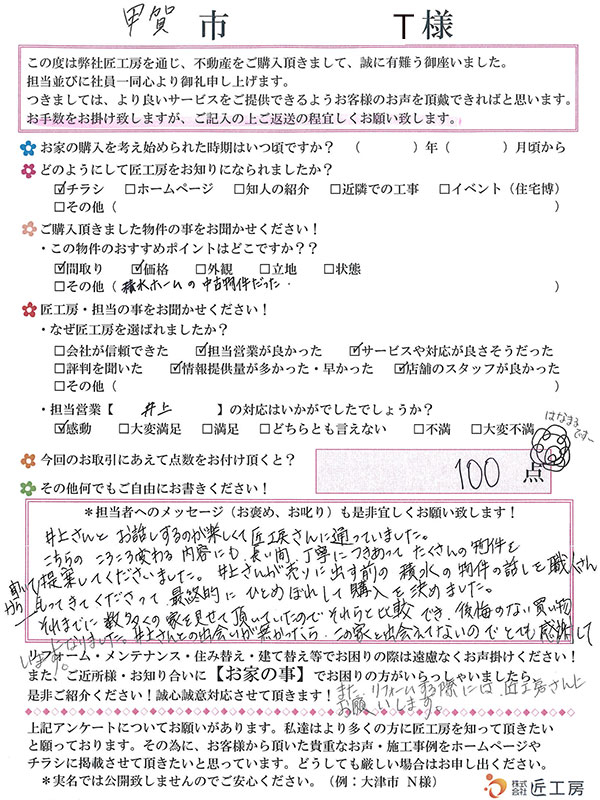 甲賀 市 T様
この度は弊社匠工房を通じ、不動産をご購入頂きまして、誠に有難う御座いました。
担当並びに社員一同心より御礼申し上げます。
つきましては、より良いサービスをご提供できるようお客様のお声を頂戴できればと思います。
お手数をお掛け致しますが、ご記入の上ご返送の程宜しくお願い致します。
お家の購入を考え始められた時期はいつ頃ですか？ （ ）年（ ）月頃から
どのようにして匠工房をお知りになられましたか？
☑チラシ □ホームページ □知人の紹介 □近隣での工事 □イベント（住宅博）
□その他（ ）
ご購入頂きました物件の事をお聞かせください！
・この物件のおすすめポイントはどこですか？？
☑間取り ☑価格 □外観 □立地 □状態
□その他（ 積水ホームの中古物件だった． ）
匠工房・担当の事をお聞かせください！
・なぜ匠工房を選ばれましたか？
□会社が信頼できた ☑担当営業が良かった ☑サービスや対応が良さそうだった
□評判を聞いた ☑情報提供量が多かった・早かった ☑店舗のスタッフが良かった
□その他（ ）
・担当営業【 井上 】の対応はいかがでしたでしょうか？
☑感動 □大変満足 □満足 □どちらとも言えない □不満 □大変不満
はなまる
ですー
今回のお取引にあえて点数をお付け頂くと？ 100 点
その他何でもご自由にお書きください！
＊担当者へのメッセージ（お褒め、お叱り）も是非宜しくお願い致します！
井上さんと お話しするのが楽しくて匠工房さんに通っていました。
こちらの ころころ変わる 内容にも 長い間、丁寧につきあって たくさんの物件を
提案してくださいました。 井上さんが売りに出す前の 積水の物件の話しを職人さん
から もってきてくださって 最終的に ひとめぼれして購入を決めました。
それまでに 数多くの家を見せて頂いていたのでそれらと比較でき、後悔のない買い物
になりました。井上さんとの出会いが無かったら、この家と出会えてないのでとても感謝して
います。
リフォーム・メンテナンス・住み替え・建て替え等でお困りの際は遠慮なくお声掛けください！
また、ご近所様・お知り合いに【お家の事】でお困りの方がいらっしゃいましたら、
是非ご紹介ください！誠心誠意対応させて頂きます！
また、リフォームする際には、匠工房さんに
お願いします。
上記アンケートについてお願いがあります。私達はより多くの方に匠工房を知って頂きたい
と願っております。その為に、お客様から頂いた貴重なお声・施工事例をホームページや
チラシに掲載させて頂きたいと思っています。どうしても厳しい場合はお申し出ください。
＊実名では公開致しませんのでご安心ください。（例：大津市 N様）
株式会社 匠工房